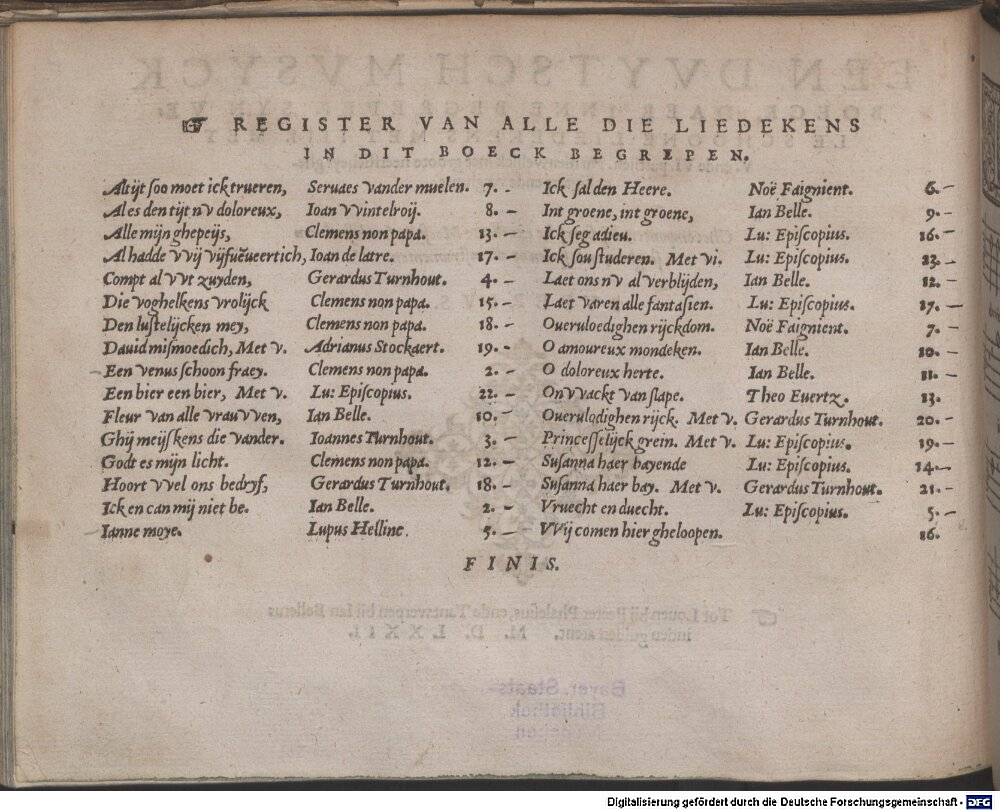 ☞ REGISTER VAN ALLE DIE LIEDEKENS
IN DIT BOECK BEGREPEN.
Altijt soo moet ick trueren, Seruaes vander muelen. 7.
Al es den tijt nv doloreux, Ioan vvintelroij. 8.
Alle mijn ghepeijs, Clemens non papa. 13.
Al hadde vvij vijfuëueertich, Ioan de latre. 17.
Compt al vvt zuyden, Gerardus Turnhout. 4.
Die voghelkens vrolijck Clemens non papa. 15.
Den lustelijcken mey, Clemens non papa. 18.
Dauid mismoedich, Met v. Adrianus Stockaert. 19.
Een venus schoon fraey. Clemens non papa. 2.
Een bier een bier, Met v. Lu: Episcopius. 22.
Fleur van alle vrauvven, Ian Belle. 10.
Ghij meijskens die vander. Ioannes Turnhout. 3.
Godt es mijn licht. Clemens non papa. 12.
Hoort vvel ons bedryf, Gerardus Turnhout. 18.
Ick en can mij niet be. Ian Belle. 2.
Ianne moye. Lupus Helline. 5.
Ick sal den Heere. Noë Faignient. 6.
Int groene, int groene, Ian Belle. 9.
Ick seg adieu. Lu: Episcopius. 16.
Ick sou studeren. Met vi. Lu: Episcopius. 23.
Laet ons nv al verblijden, Ian Belle. 12.
Laet varen alle fantasien. Lu: Episcopius. 17.
Oueruloedighen rijckdom. Noë Faignient. 7.
O amoureux mondeken. Ian Belle. 10.
O doloreux herte. Ian Belle. 11.
Onvvackt van slape. Theo Euertz. 13.
Ouerulodighen rijck. Met v. Gerardus Turnhout. 20.
Princesselijck grein. Met v. Lu: Episcopius. 19.
Susanna haer bayende Lu: Episcopius. 14.
Susanna haer bay. Met v. Gerardus Turnhout. 21.
Vruecht en duecht. Lu: Episcopius. 5.
VVij comen hier gheloopen. 16.
FINIS.
Tot Louen bij Peeter Phalesius, ende Tantwerpen bij Ian Bellerus
inden gulden arent. M. D. LXXII.
Bayer. Staats-
Bibliothek
München
Digitalisierung gefördert durch die Deutsche Forschungsgemeinschaft - DFG